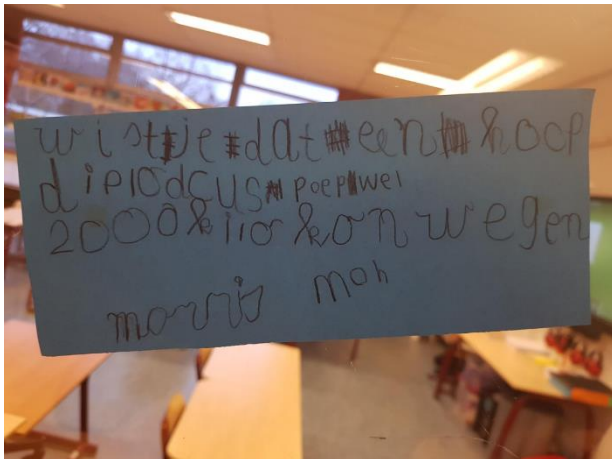 wist je dat een hoop
diplodcus poep wel
2000 kilo kon wegen
morris moh